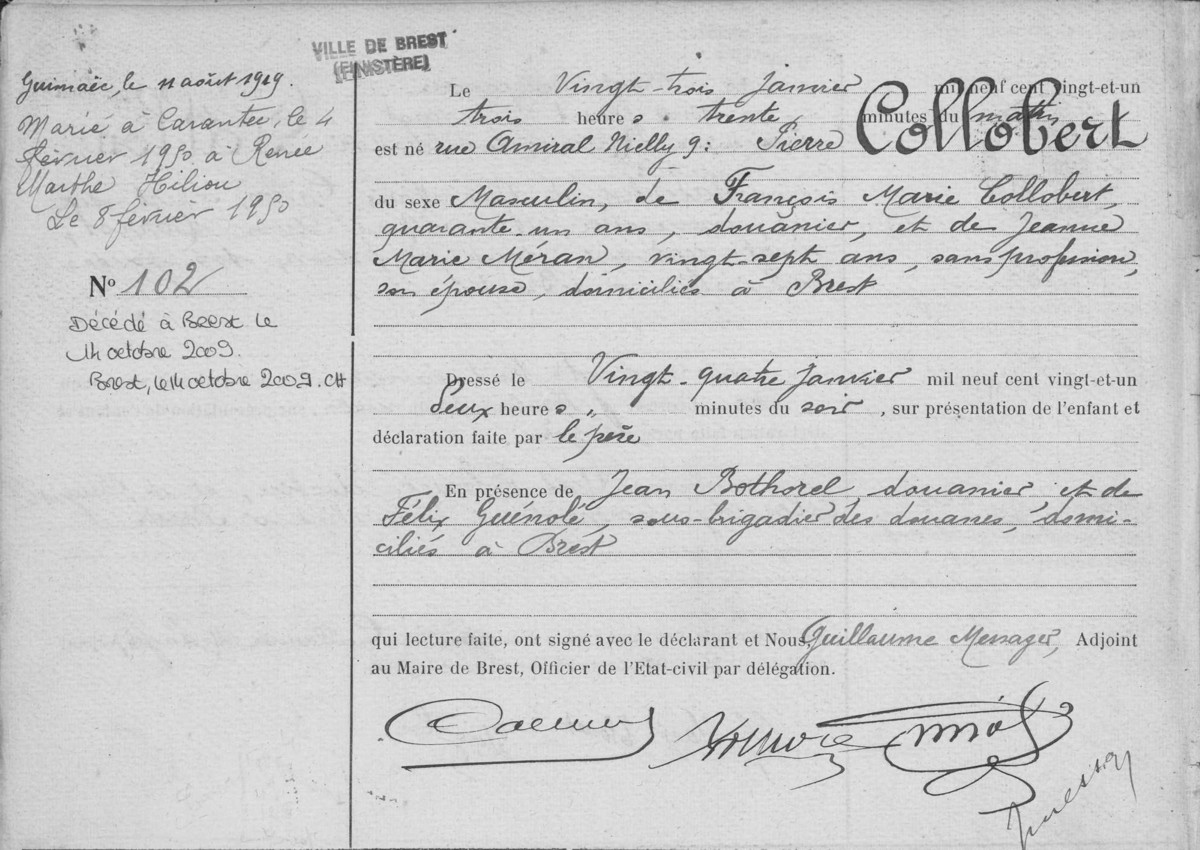 VILLE DE BREST
(FINISTÈRE)
Guimaëc, le 11 août 1919.
Marié à Carantec, le 4
février 1950 à Renée
Marthe Hiliou
Le 8 février 1950
N° 102
Décédé à Brest le
14 octobre 2009.
Brest, le 14 octobre 2009. CH
Collobert
Le Vingt-trois janvier mil neuf cent vingt-et-un
trois heures trente minutes du matin
est né rue Amiral Nielly 9 : Pierre
du sexe Masculin, de François Marie Collobert,
quarante-un ans, douanier, et de Jeanne
Marie Méran, vingt-sept ans, sans profession,
son épouse, domiciliés à Brest
Dressé le Vingt-quatre janvier mil neuf cent vingt-et-un
deux heures „ minutes du soir, sur présentation de l'enfant et
déclaration faite par le père
En présence de Jean Bothorel, douanier et de
Félix Guénolé, sous-brigadier des douanes, domi-
ciliés à Brest
qui lecture faite, ont signé avec le déclarant et Nous, Guillaume Messager, Adjoint
au Maire de Brest, Officier de l'Etat-civil par délégation.